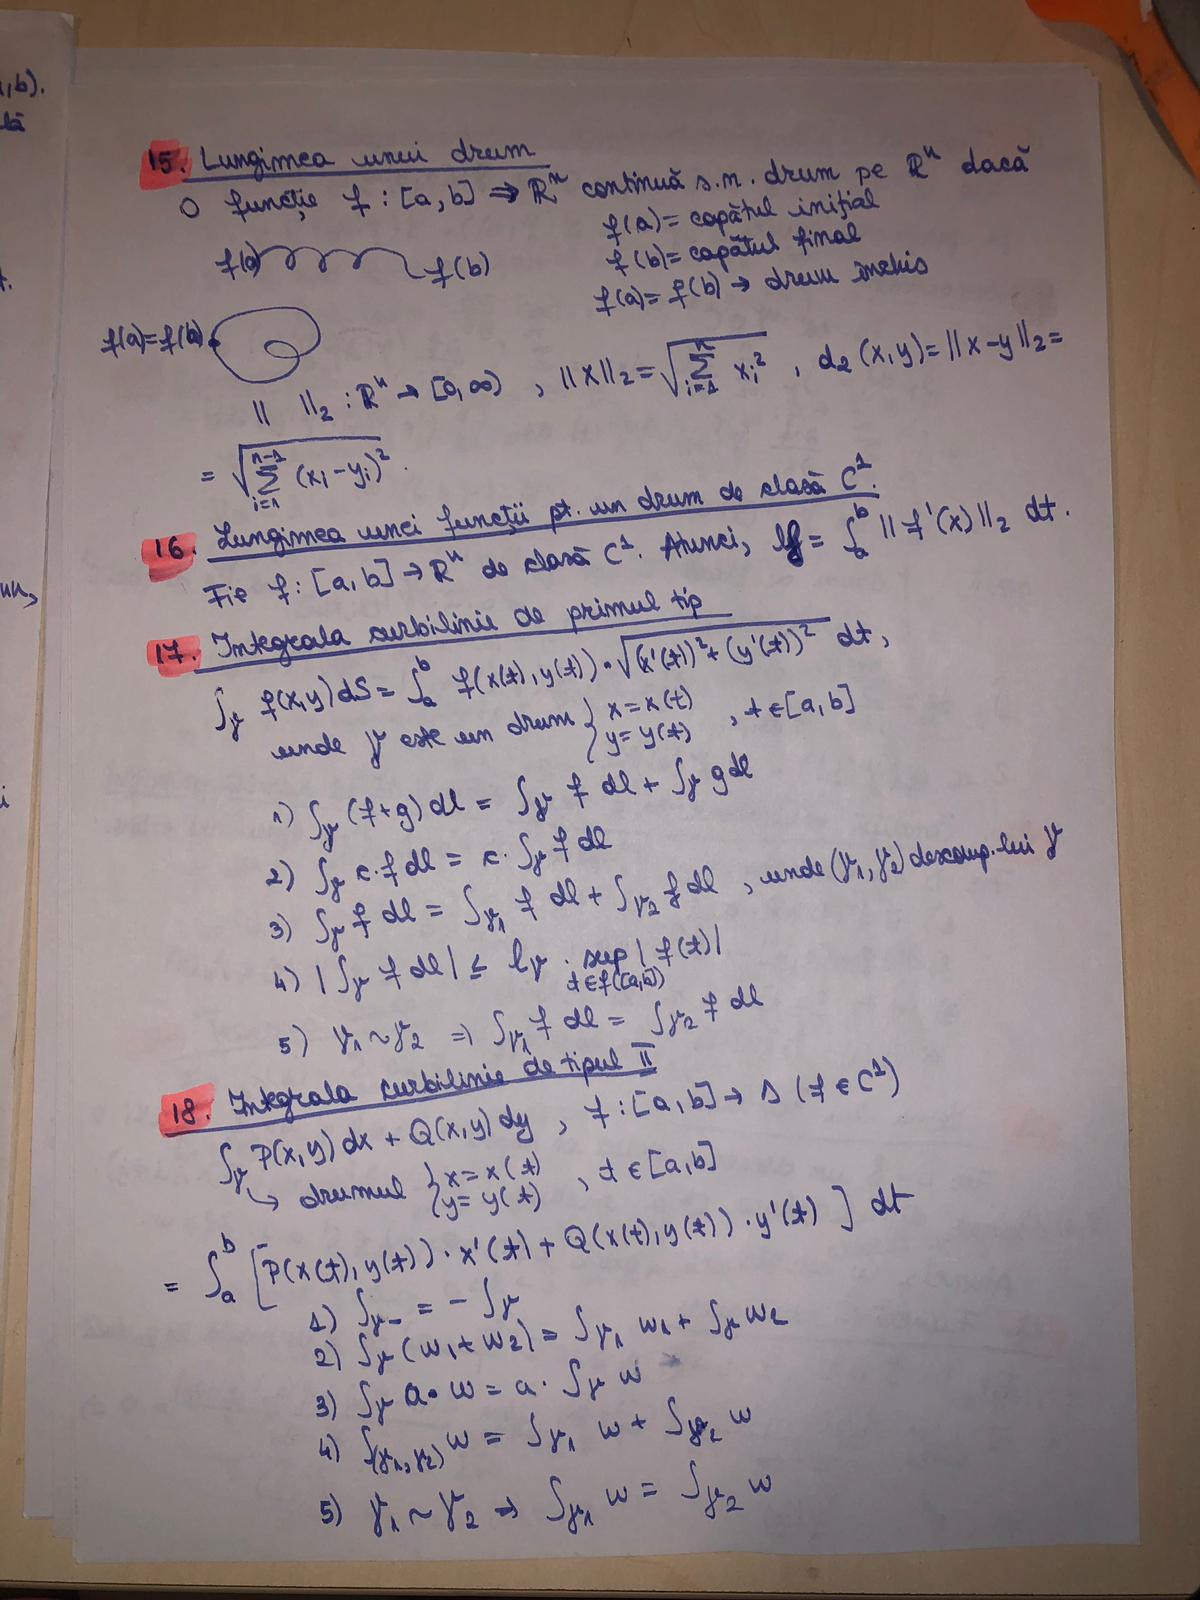 ,b).
15. Lungimea unui drum
O funcție f : [a, b] → ℝⁿ continuă s.n. drum pe ℝⁿ dacă
f(a) = capătul inițial
f(b) = capătul final
f(a) = f(b) → drum închis
f(a) f(b)
f(a)=f(b)
|| ||₂ : ℝⁿ → [0, ∞) , ||x||₂ = √(∑_{i=1}^{n} xᵢ²) , d₂(x,y) = ||x-y||₂ =
= √(∑_{i=1}^{n-1} (xᵢ - yᵢ)²) .
16. Lungimea unei funcții pt. un drum de clasă C¹.
Fie f : [a, b] → ℝⁿ de clasă C¹. Atunci, lf = ∫ₐᵇ || f'(x) ||₂ dt.
17. Integrala curbilinie de primul tip
∫_γ f(x,y) dS = ∫ₐᵇ f(x(t), y(t)) · √((x'(t))² + (y'(t))²) dt,
unde γ este un drum { x = x(t) y = y(t) , t ∈ [a, b]
1) ∫_γ (f+g) dl = ∫_γ f dl + ∫_γ g dl
2) ∫_γ c · f dl = c · ∫_γ f dl
3) ∫_γ f dl = ∫_γ₁ f dl + ∫_γ₂ f dl , unde (γ₁, γ₂) descomp. lui γ
4) | ∫_γ f dl | ≤ l_γ · sup | f(t) |
t ∈ f([a,b])
5) γ₁ ~ γ₂ ⇒ ∫_γ₁ f dl = ∫_γ₂ f dl
18. Integrala curbilinie de tipul II
∫_γ P(x,y) dx + Q(x,y) dy , f : [a, b] → Δ (f ∈ C¹)
↳ drumul { x = x(t) y = y(t) , t ∈ [a, b]
= ∫ₐᵇ [P(x(t), y(t)) · x'(t) + Q(x(t), y(t)) · y'(t) ] dt
1) ∫_γ₋ = - ∫_γ
2) ∫_γ (w₁ + w₂) = ∫_γ₁ w₁ + ∫_γ w₂
3) ∫_γ a · w = a · ∫_γ w
4) ∫_(γ₁, γ₂) w = ∫_γ₁ w + ∫_γ₂ w
5) γ₁ ~ γ₂ → ∫_γ₁ w = ∫_γ₂ w